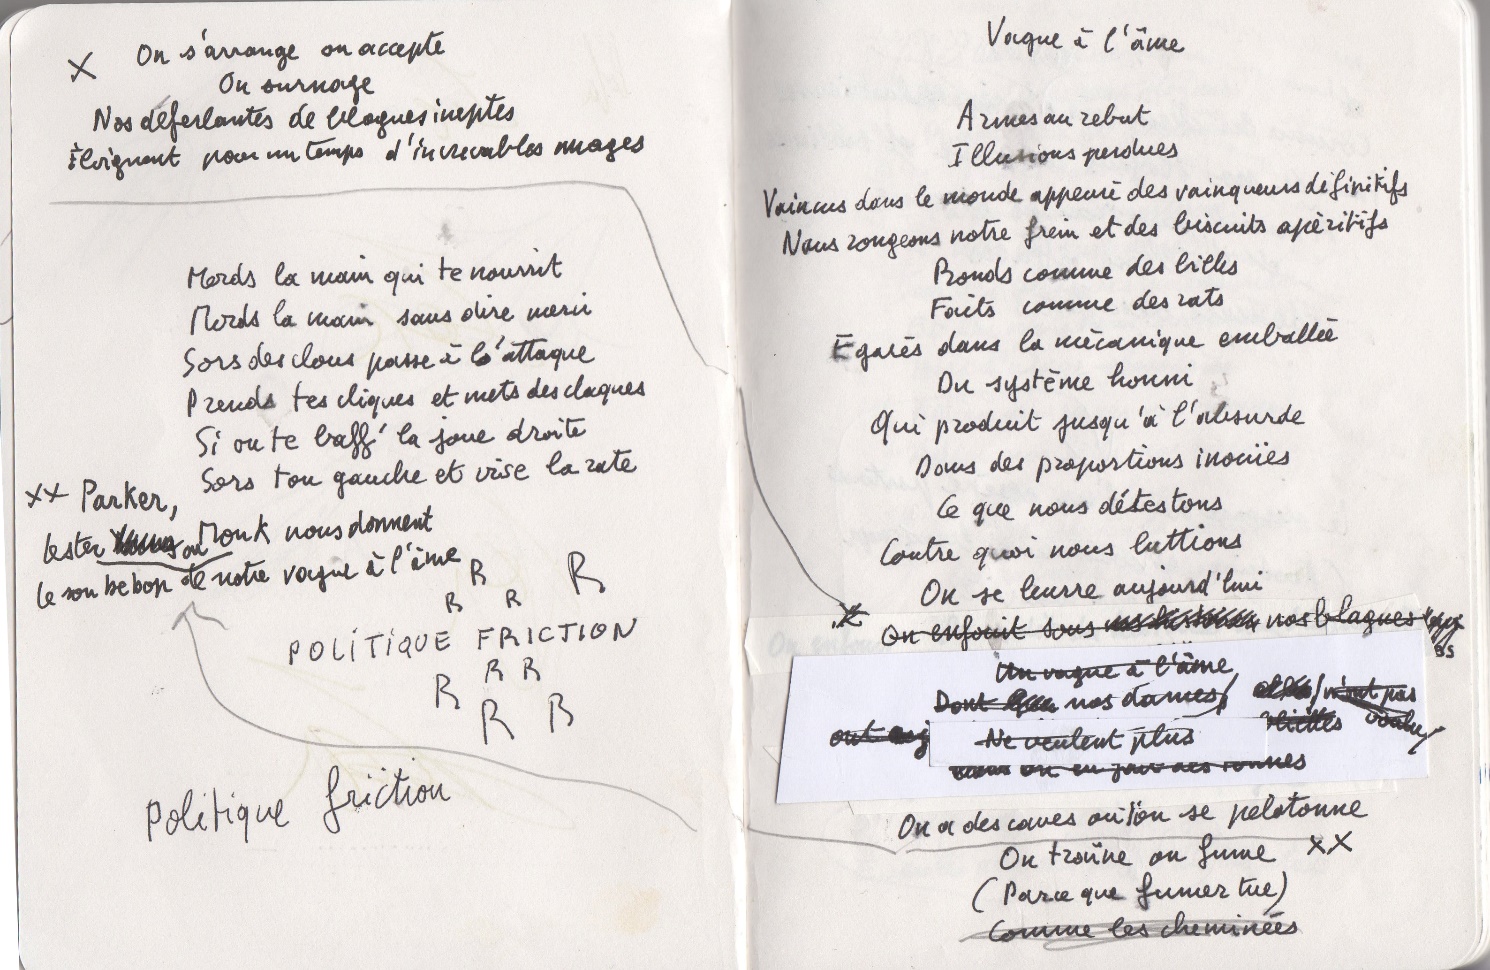 X On s'arrange on accepte
On surnage
Nos déferlantes de blagues ineptes
Éloignent pour un temps d'increvables nuages
Mords la main qui te nourrit
Mords la main sans dire merci
Sors des clous passe à l'attaque
Prends tes cliques et mets des claques
Si on te baff' la joue droite
Sors ton gauche et vise la rate
XX Parker,
Lester ou Monk nous donnent
le son bebop de notre vague à l'âme
R R
R R
POLITIQUE FRICTION
R R
R R R
Politique friction
Vague à l'âme
Armes au rebut
Illusions perdues
Vaincus dans le monde appeuré des vainqueurs définitifs
Nous rongeons notre frein et des biscuits apéritifs
Ronds comme des billes
Faits comme des rats
Égarés dans la mécanique emballée
Du système honni
Qui produit jusqu'à l'absurde
Dans des proportions inouïes
Ce que nous détestons
Contre quoi nous luttions
On se leurre aujourd'hui
X
On enfouit sous nos blagues
Un vague à l'âme
Dont nos dames n'ont pas
Ne veulent plus
On a des caves où l'on se pelotonne
On traîne on fume XX
(Parce que fumer tue)
Comme les cheminées